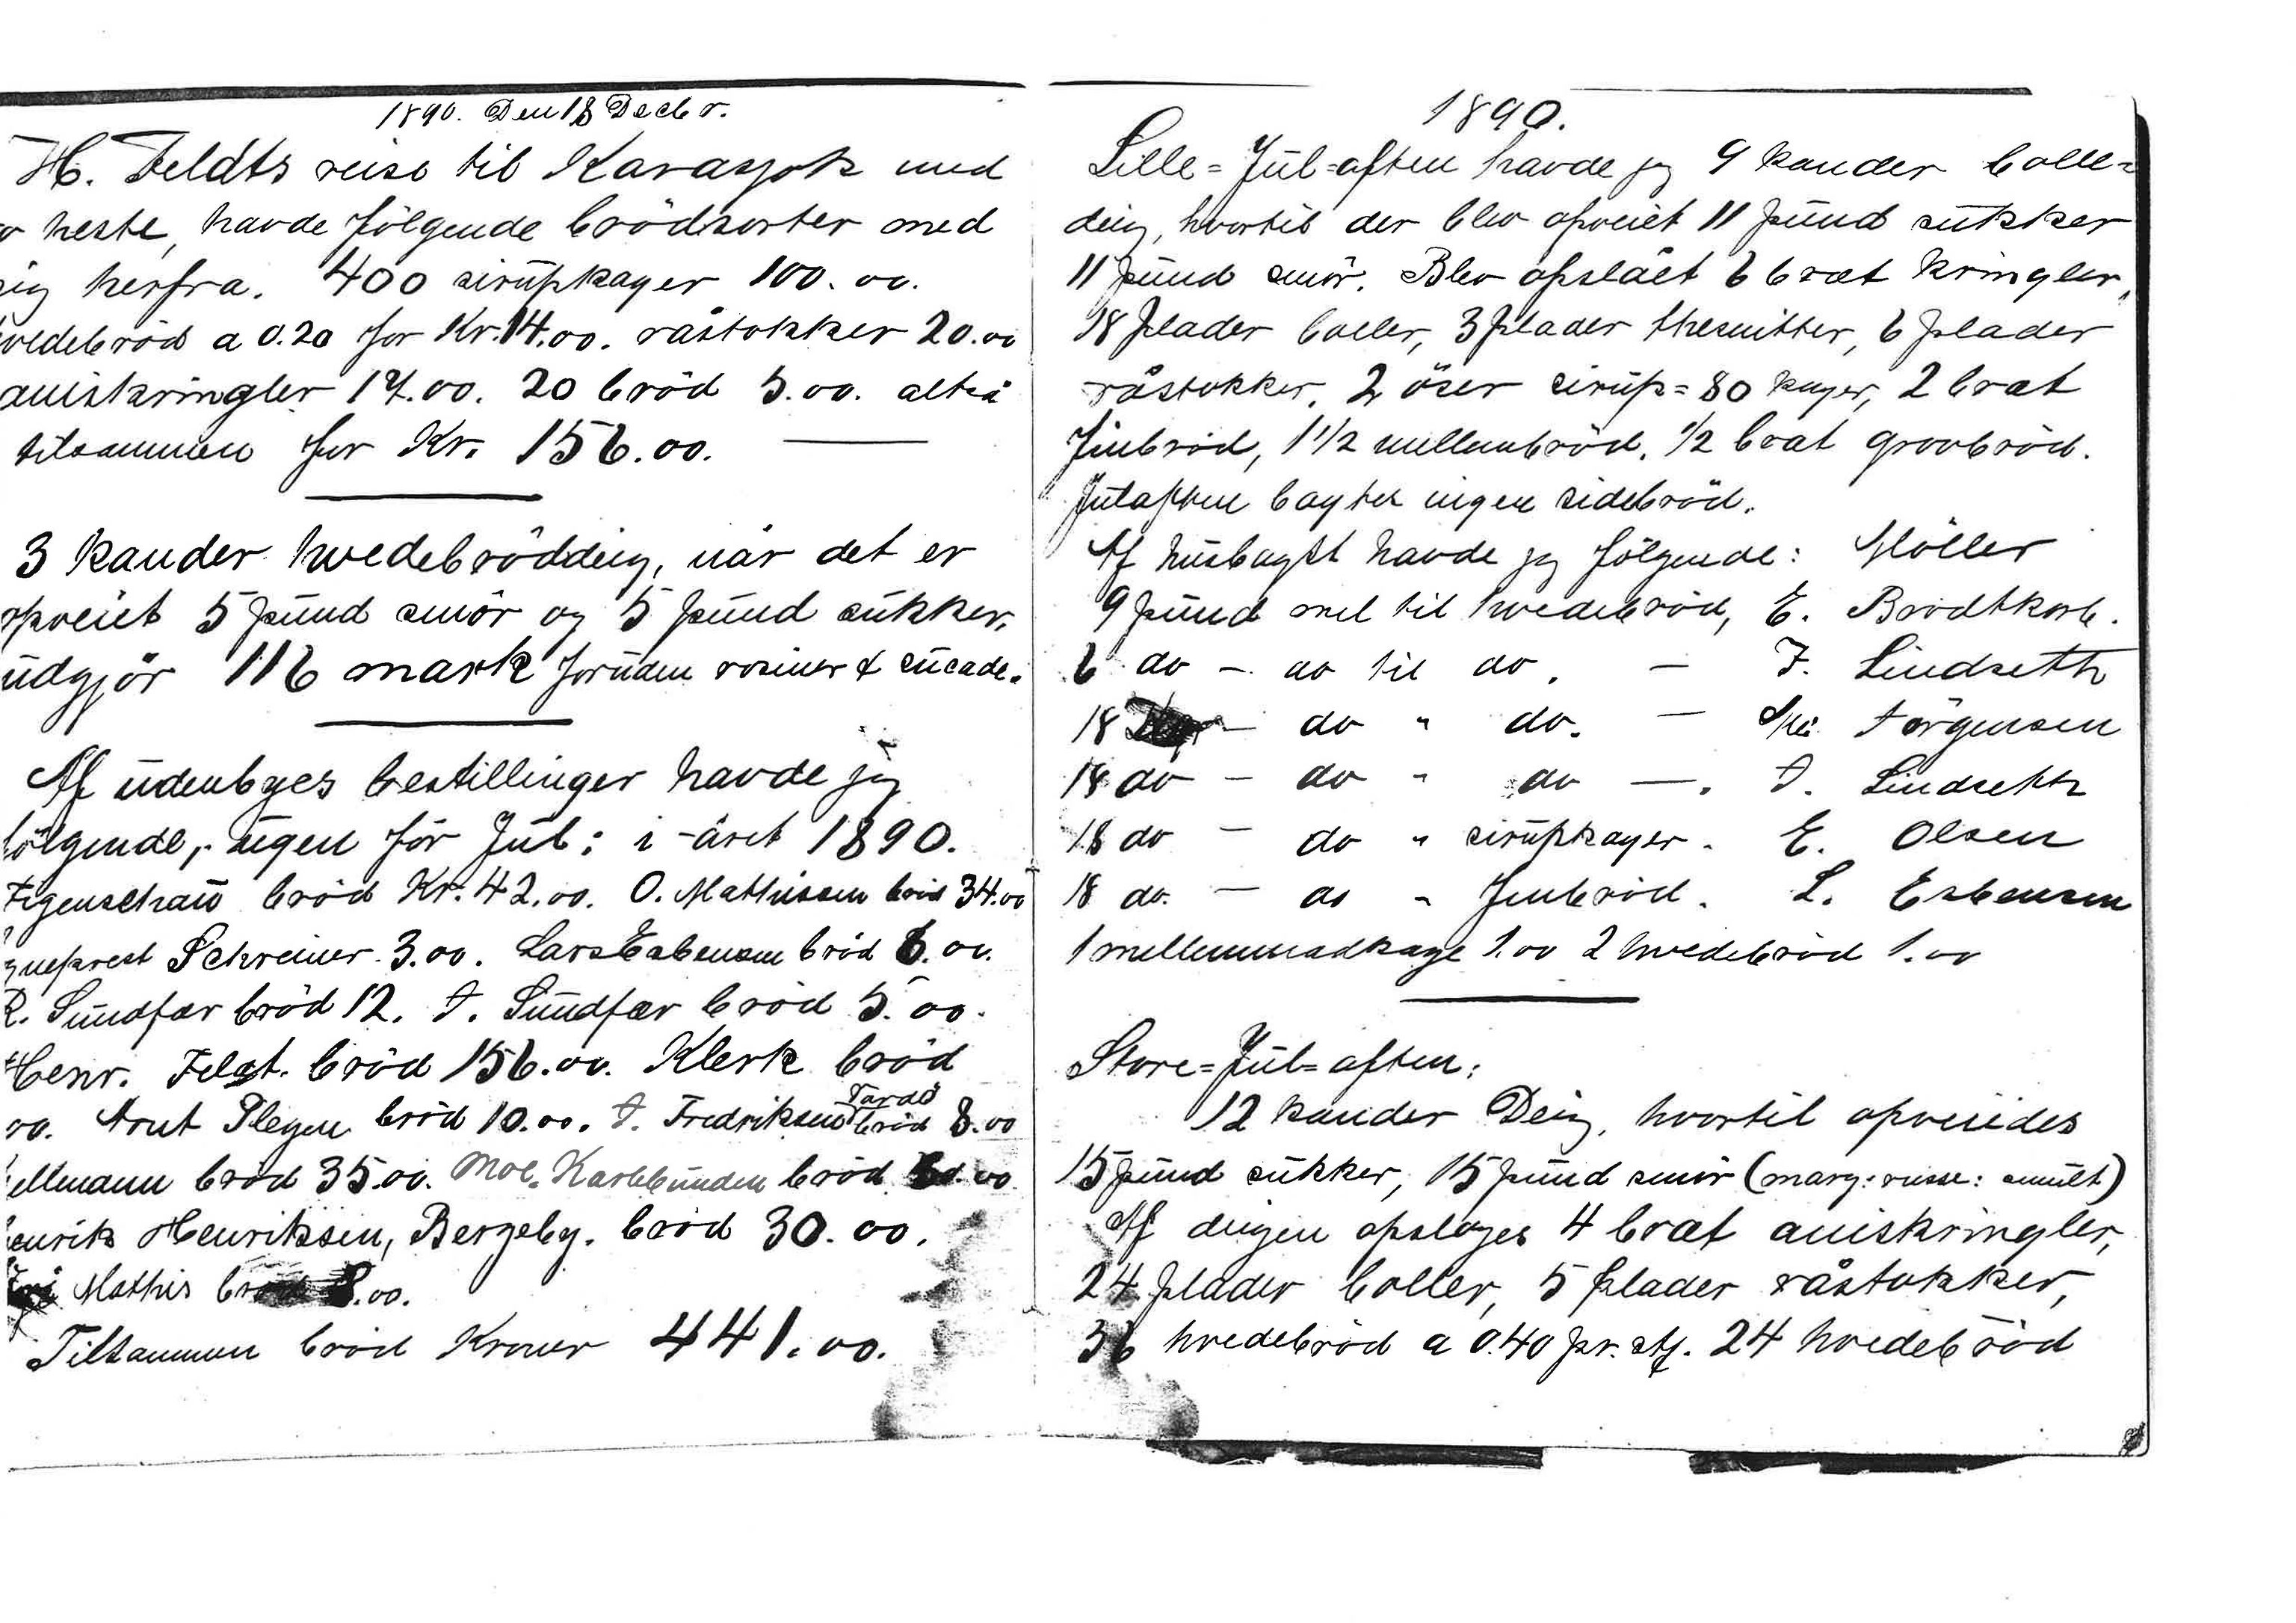 1890. Den 18 Decbr.
H. Feldts reise til Karasjok med
heste, havde følgende brödsorter med
sig herfra. 400 sirüpkager 100.00.
vedebröd a 0.20 for Kr. 14.00. råstokker 20.00
aniskringler 17.00. 20 bröd 5.00. altså
tilsammen for Kr. 156.00.
3 kander hvedebröddeig, når det er
opveiet 5 pünd smör og 5 pünd sükker,
üdgjör 116 mark forüden rosiner & sücade.
Af üdenbyes bestillinger havde jeg
følgende, ügen för Jül: i året 1890.
bröd Kr. 42.00. O. Mathissen bröd 34.00
gneprest Schreiner 3.00. Lars Esbensen bröd 6.00.
R. Sündfær bröd 12. J. Sündfær bröd 5.00.
Henr. Feldt. bröd 156.00. Klerk bröd
00. Arnt Plegen bröd 10.00. J. Fredriksen bröd 8.00
Tardö
ellmann bröd 35.00. Moe. Karlebünden bröd
enrik Henriksen, Bergeby. bröd 30.00.
Mathis bröd 8.00.
Tilsammen bröd Kroner 441.00.
1890.
Lille=Jül=aften havde jeg 9 kander bolle=
deig, hvortil der blev opveiet 11 pünd sükker
11 pünd smör. Blev opslået 6 bræt kringler,
18 plader boller, 3 plader thesnitter, 6 plader
råstokker, 2 öser sirüp=80 kager, 2 bræt
finbröd, 1 1/2 mellembröd, 1/2 bræt grovbröd.
Jülaften bagtes ingen sidebröd.
Af hüsbagst havde jeg følgende: Möller
9 pünd mel til hvedebröd, E. Brodtkorb.
6 do – do til do. — F. Lindseth
18 – do " do. — Jörgensen
18 do – do " do —. J. Lindseth
18 do – do " sirüpkager. E. Olsen
18 do. – do " finbröd. L. Esbensen
1 mellemmadkage 1.00 2 hvedebröd 1.00
Store=Jül=aften:
12 kander Deig, hvortil opveiedes
15 pünd sükker, 15 pünd smör (marg: rüsse: smült)
Af deigen opsloges 4 bræt aniskringler,
24 plader boller, 5 plader råstokker,
36 hvedebröd a 0.40 pr. stk. 24 hvedebröd